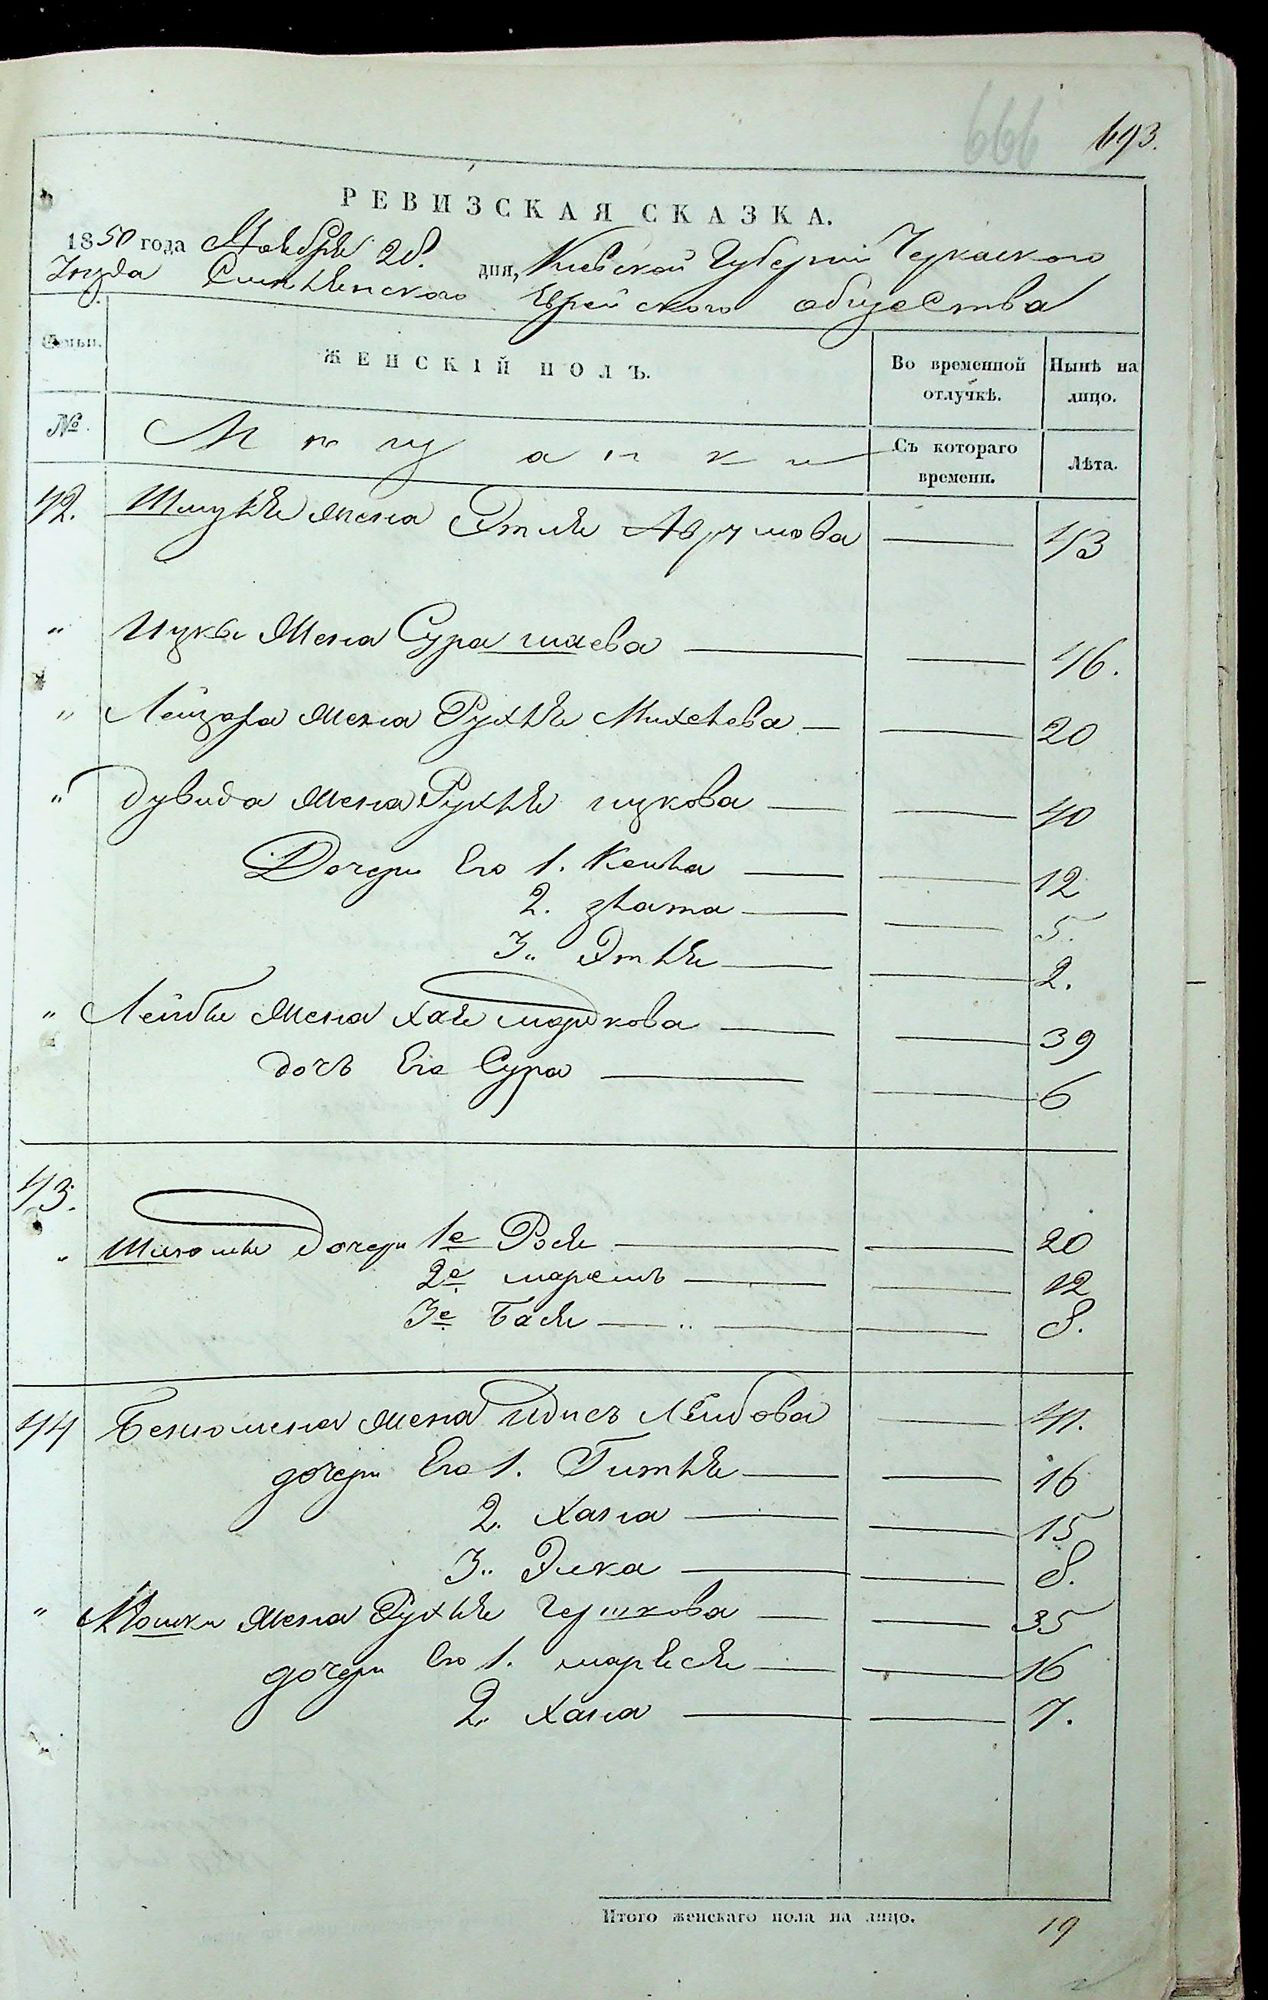 666 693.
РЕВИЗСКАЯ СКАЗКА.
1850 года Ноября 28. дня, Киевской Губернии Черкаского
Уезда Смилянского Еврейского общества
Семьи. ЖЕНСКІЙ ПОЛЪ. Во временной отлучкѣ. Нынѣ на лицо.
№ Мещанки Съ котораго времени. Лѣта.
42. жена Этля Аврумова 43
" Ицки жена Сура шаева 46.
" Лейзора жена Рухля Михелева 20
" Дувида жена Рухля ицкова 40
Дочери Его 1. Кейла 12
2. злата 5.
3. Этля 2.
" Лейбы жена Хая мордкова 39
дочь Его Сура 6
43.
" Шлиомы дочери 1е Рося 20
2е марьемъ 12
3е Бася 8.
44 Бениомена жена Идись Лейбова 41.
дочери Его 1. Гитля 16
2. Хана 15
3. Элка 8.
" Мошки жена Рухля Гершкова 35
дочери Его 1. марьяся 16
2. Хана 7.
Итого женскаго пола на лицо. 19